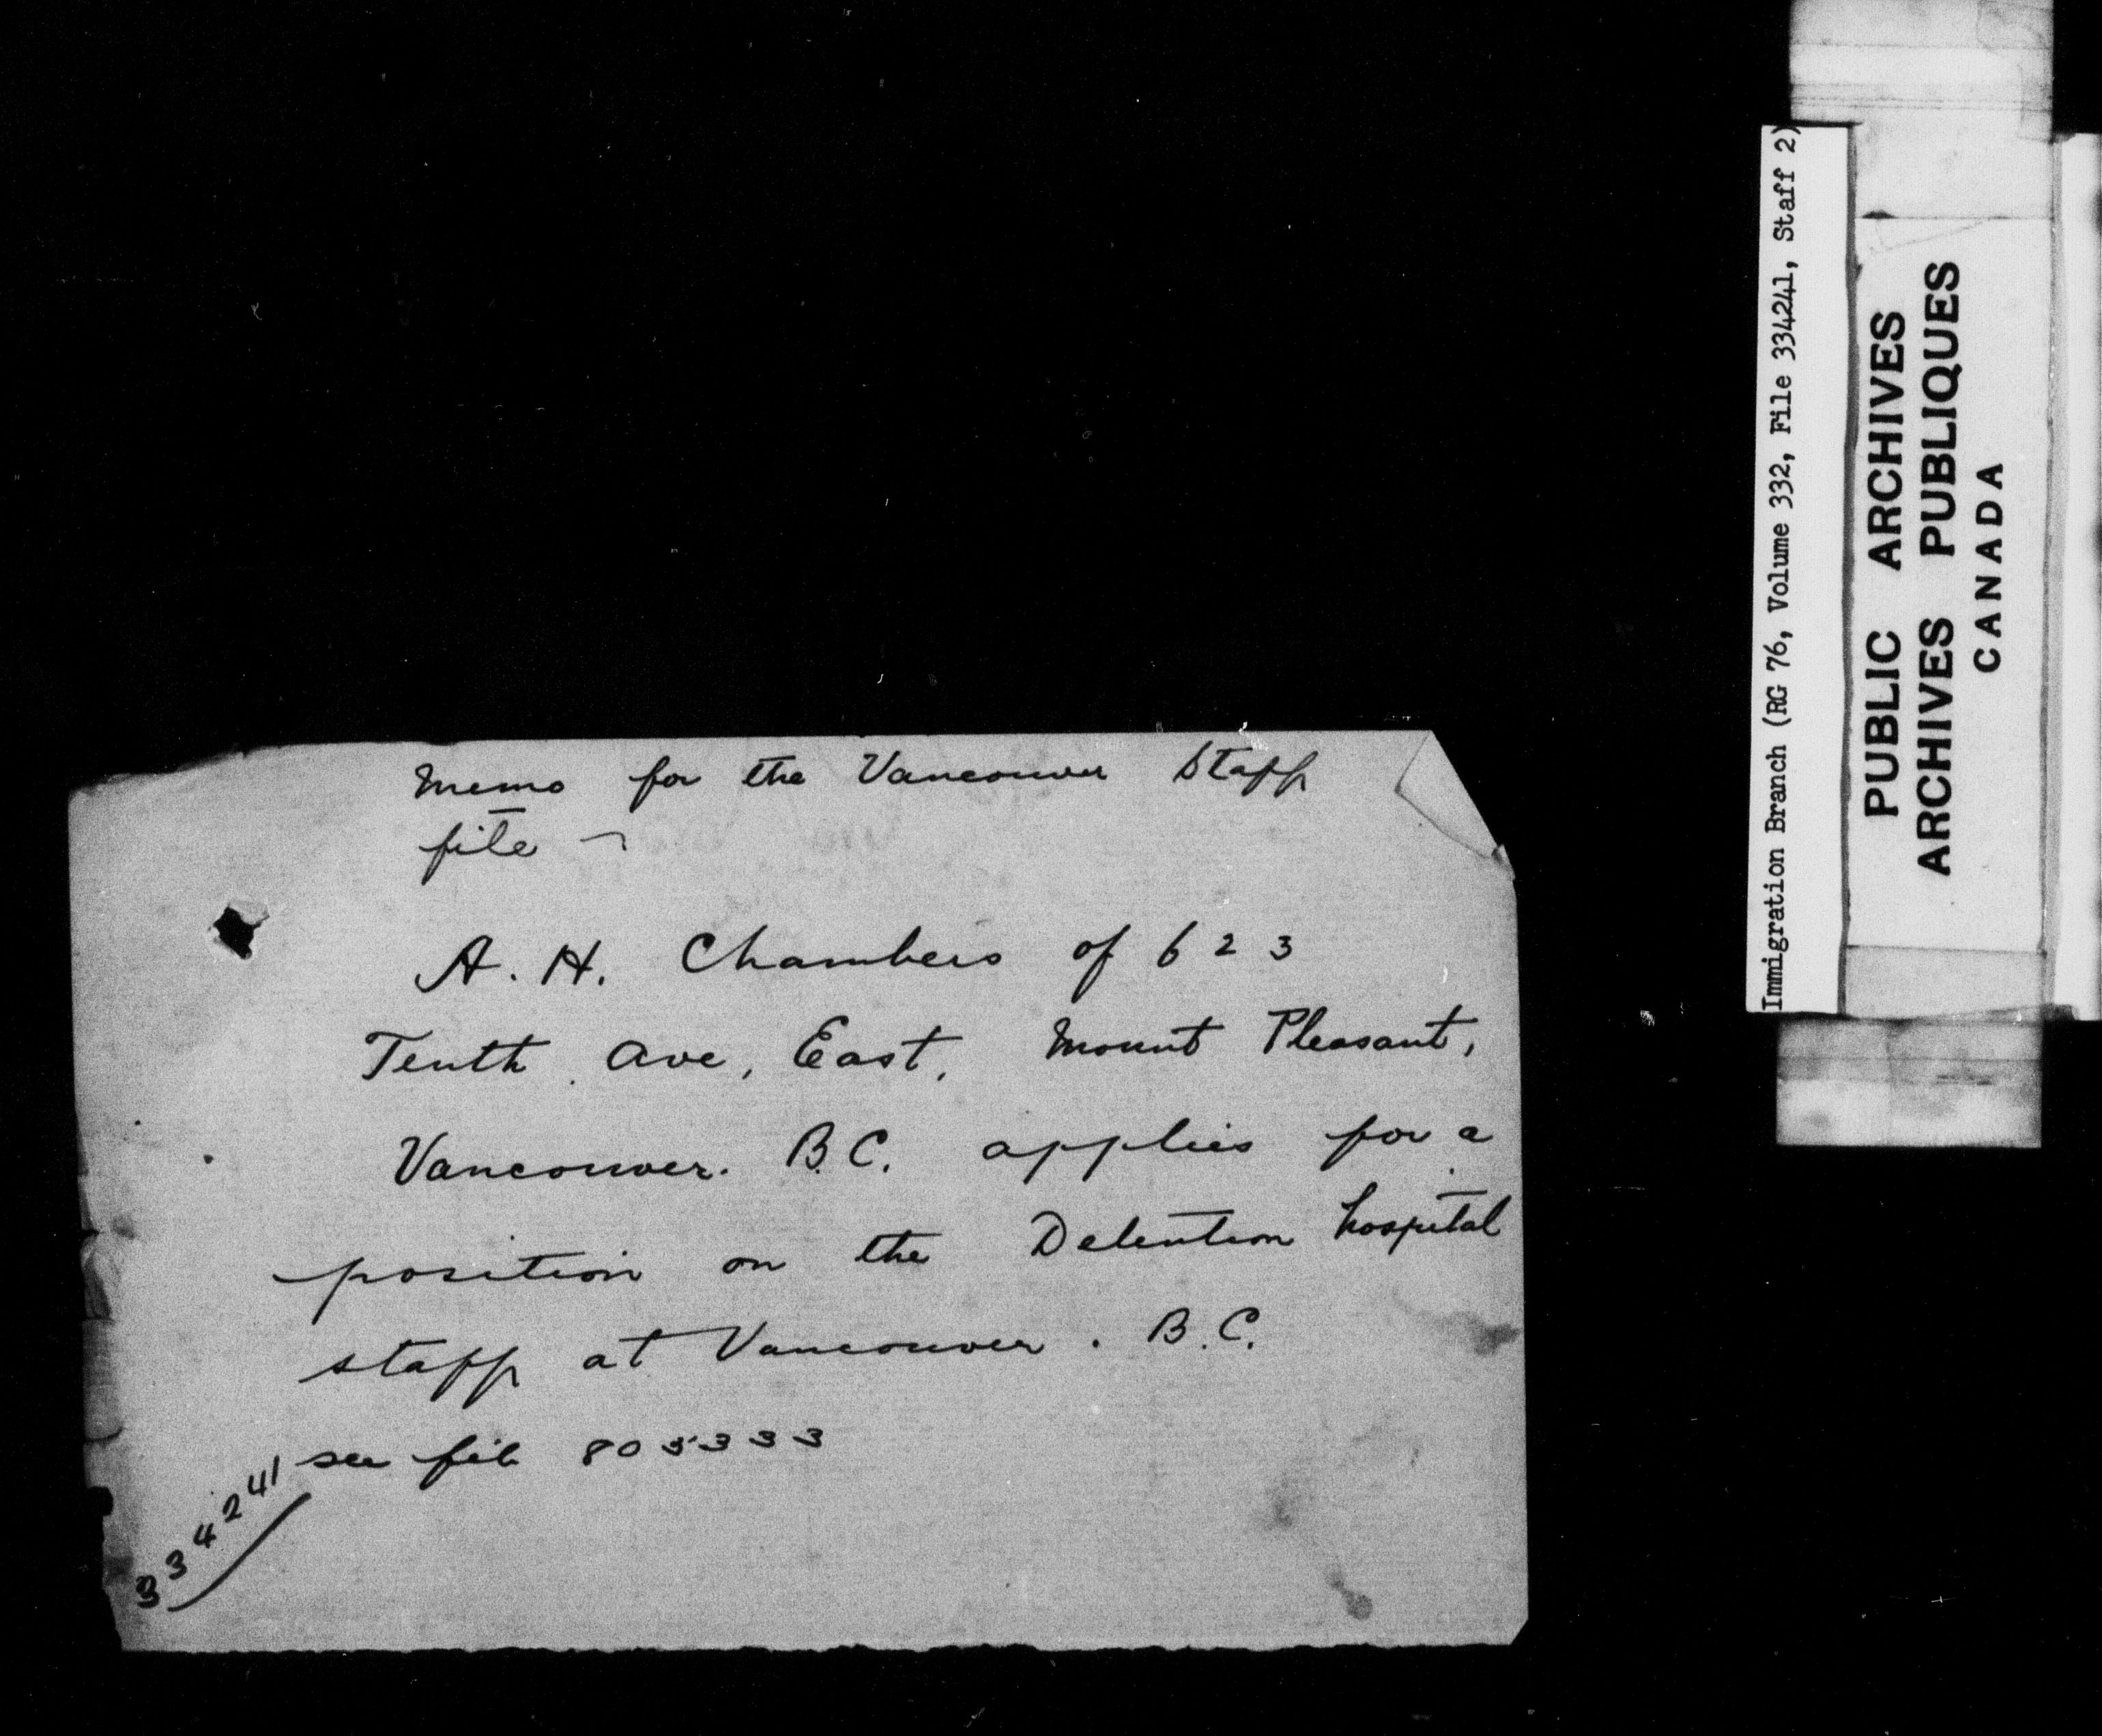 Memo for the Vancouver Staff
file -
A. H. Chambers of 623
Tenth Ave, East, Mount Pleasant,
Vancouver. B.C. applies for a
position on the Detention hospital
staff at Vancouver. B.C.
see file 805333
334241
Immigration Branch (RG 76, Volume 332, File 334241, Staff 2)
PUBLIC ARCHIVES
ARCHIVES PUBLIQUES
CANADA